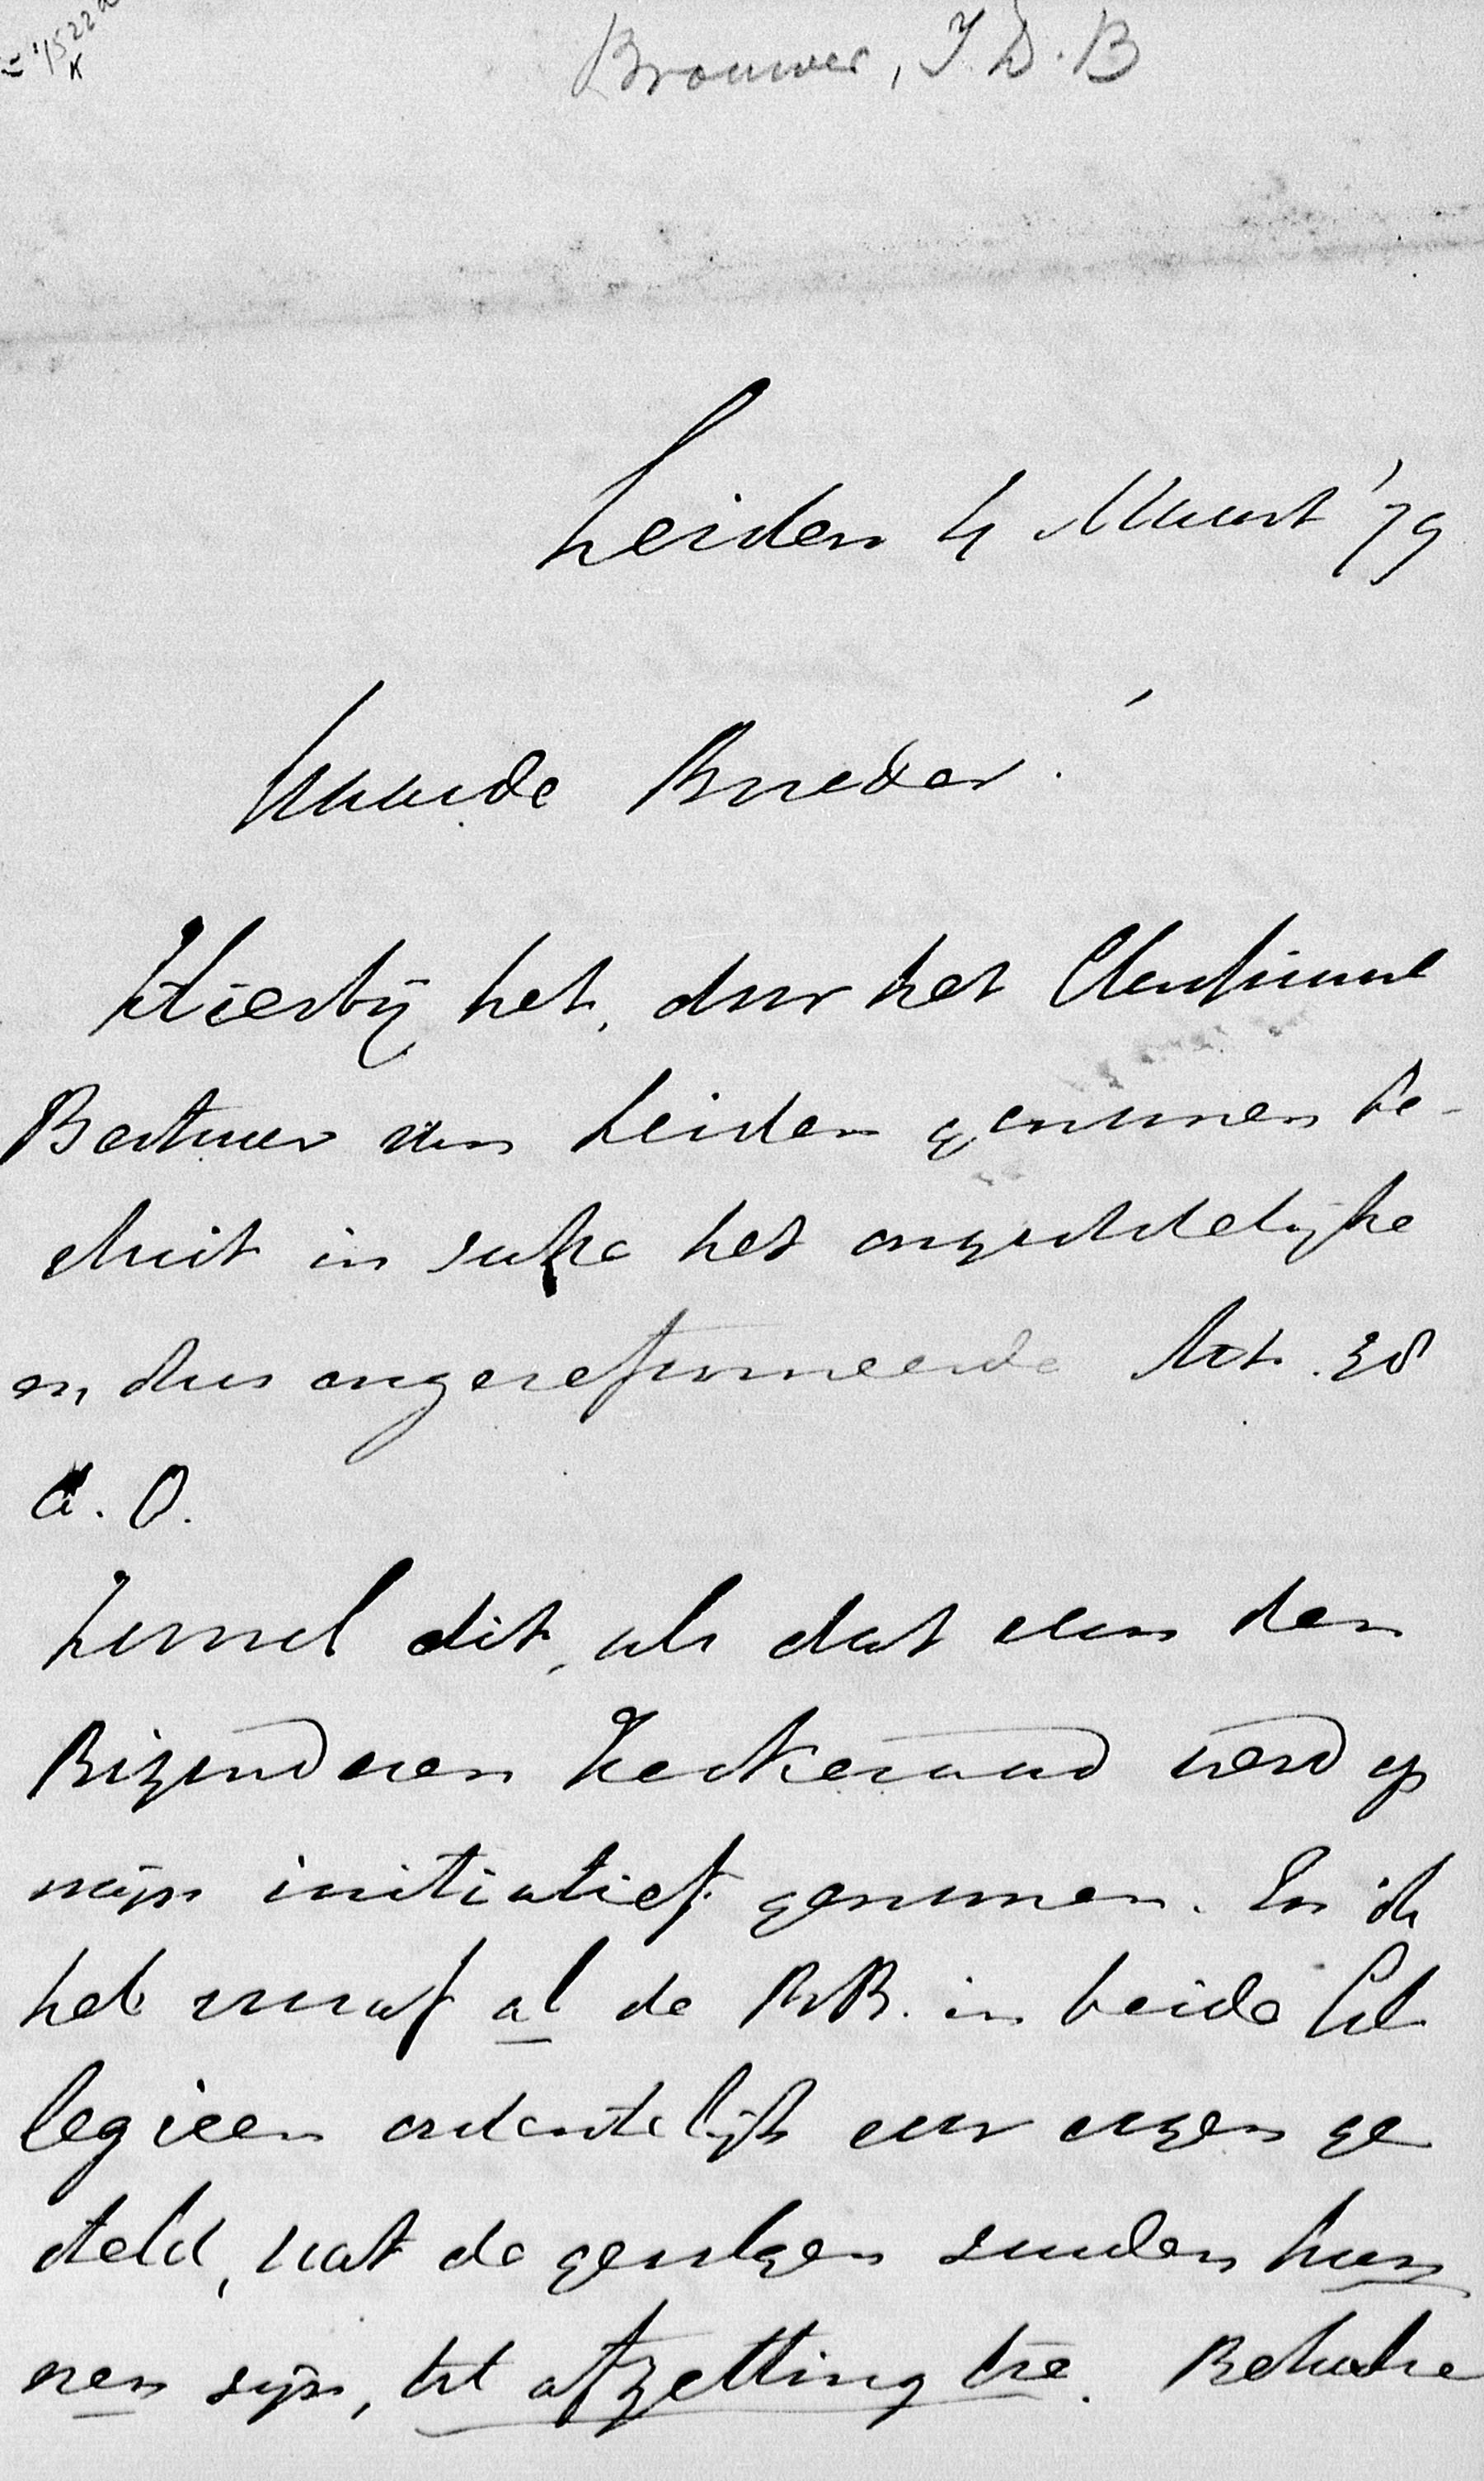 Brouwer, J. D. B
Leiden 4 Maart '79
Waarde Broeder!
Hierbij het, door het Classicaal
Bestuur van Leiden genomen be-
sluit in zake het onzedelijke
en dus ongereformeerde Art. 38
A. O.
Zoowel dit, als dat van den
Bizonderen Kerkeraad werd op
mijn initiatief genomen. En ik
heb vooraf al de BrBr. in beide Col
legieen ordentelijk voor oogen ge
steld, wat de gevolgen zouden kun
nen zijn, tot afzetting toe. Behalve